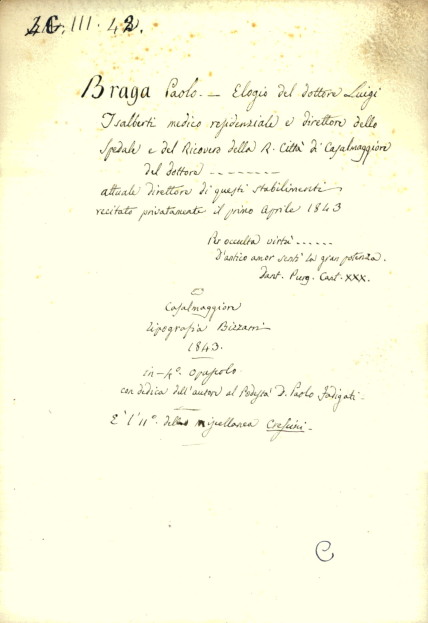 C. III. 42.
Braga Paolo. — Elogio del dottore Luigi
Isalberti medico residenziale e direttore dello
Spedale e del Ricovero della R. Città di Casalmaggiore
del dottore --------
attuale direttore di questi stabilimenti
recitato privatamente il primo Aprile 1843
Per occulta virtù ......
D'antico amor sentì la gran potenza.
Dant. Purg. Cant. XXX.
Casalmaggiore
tipografia Bizzarri
1843.
in-4°. opuscolo
con dedica dell'autore al Podestà D. Paolo Fadigati.
È l'11°. della miscellanea
C